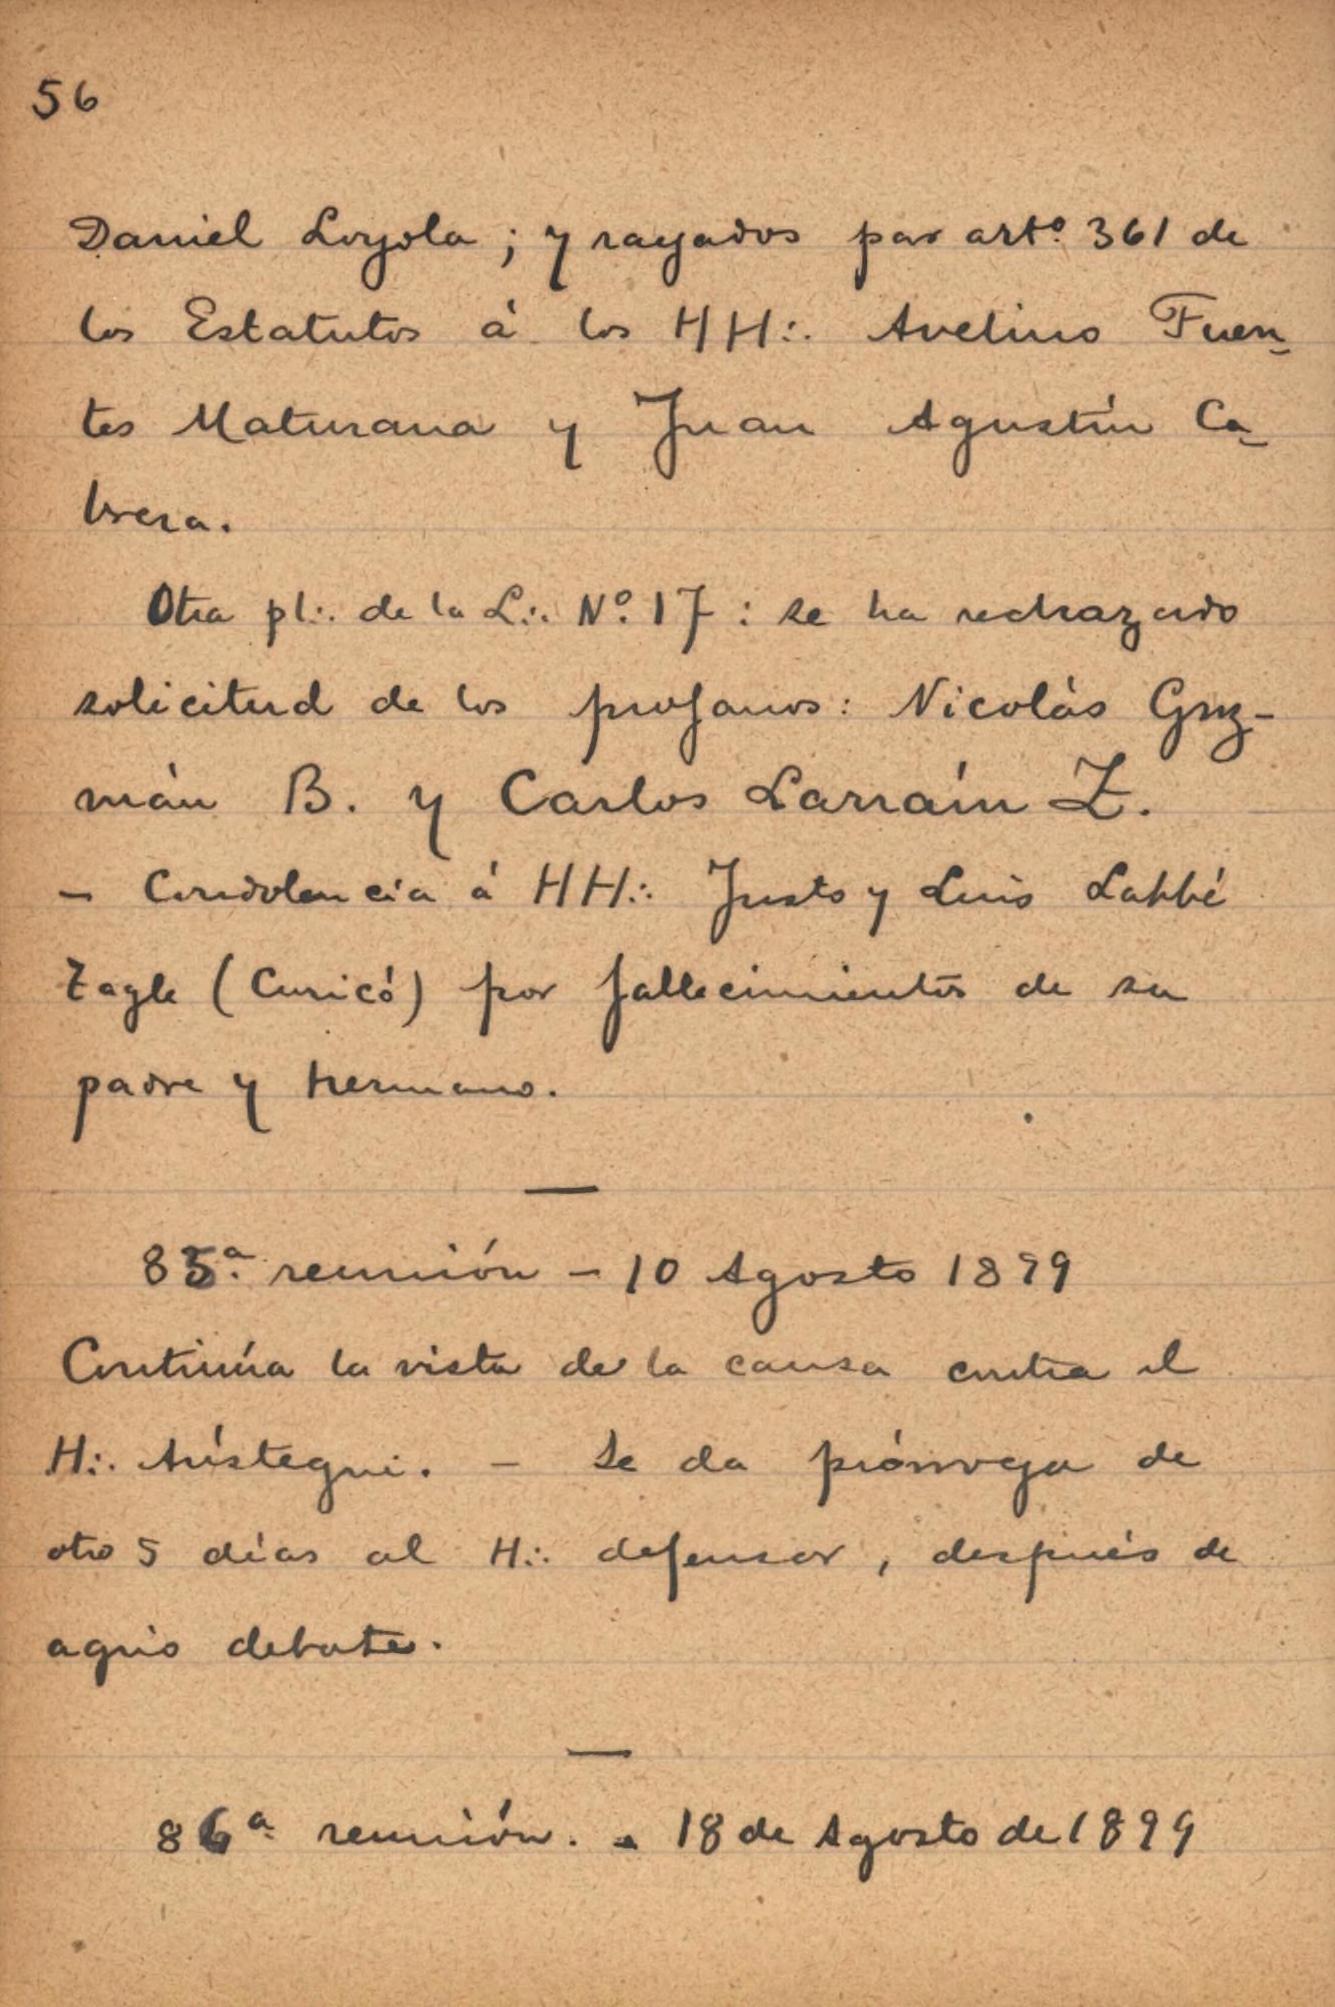 56
Daniel Loyola; y rayados por artº. 361 de
los Estatutos á los HH∴ Avelino Fuen-
tes Maturana y Juan Agustín Ca-
brera.
Otra pl∴ de la L∴ Nº. 17: se ha rechazado
solicitud de los profanos: Nicolás Guz-
mán B. y Carlos Larraín Z.
- Condolencia á HH∴ Justo y Luis Labbé
Tagle (Curicó) por fallecimientos de su
padre y hermano.
—
85ª. reunión - 10 Agosto 1899
Continúa la vista de la causa contra el
H∴ Arístegui. - Se da prórroga de
otro 5 días al H∴ defensor, después de
agrio debate.
—
86ª reunión. - 18 de Agosto de 1899